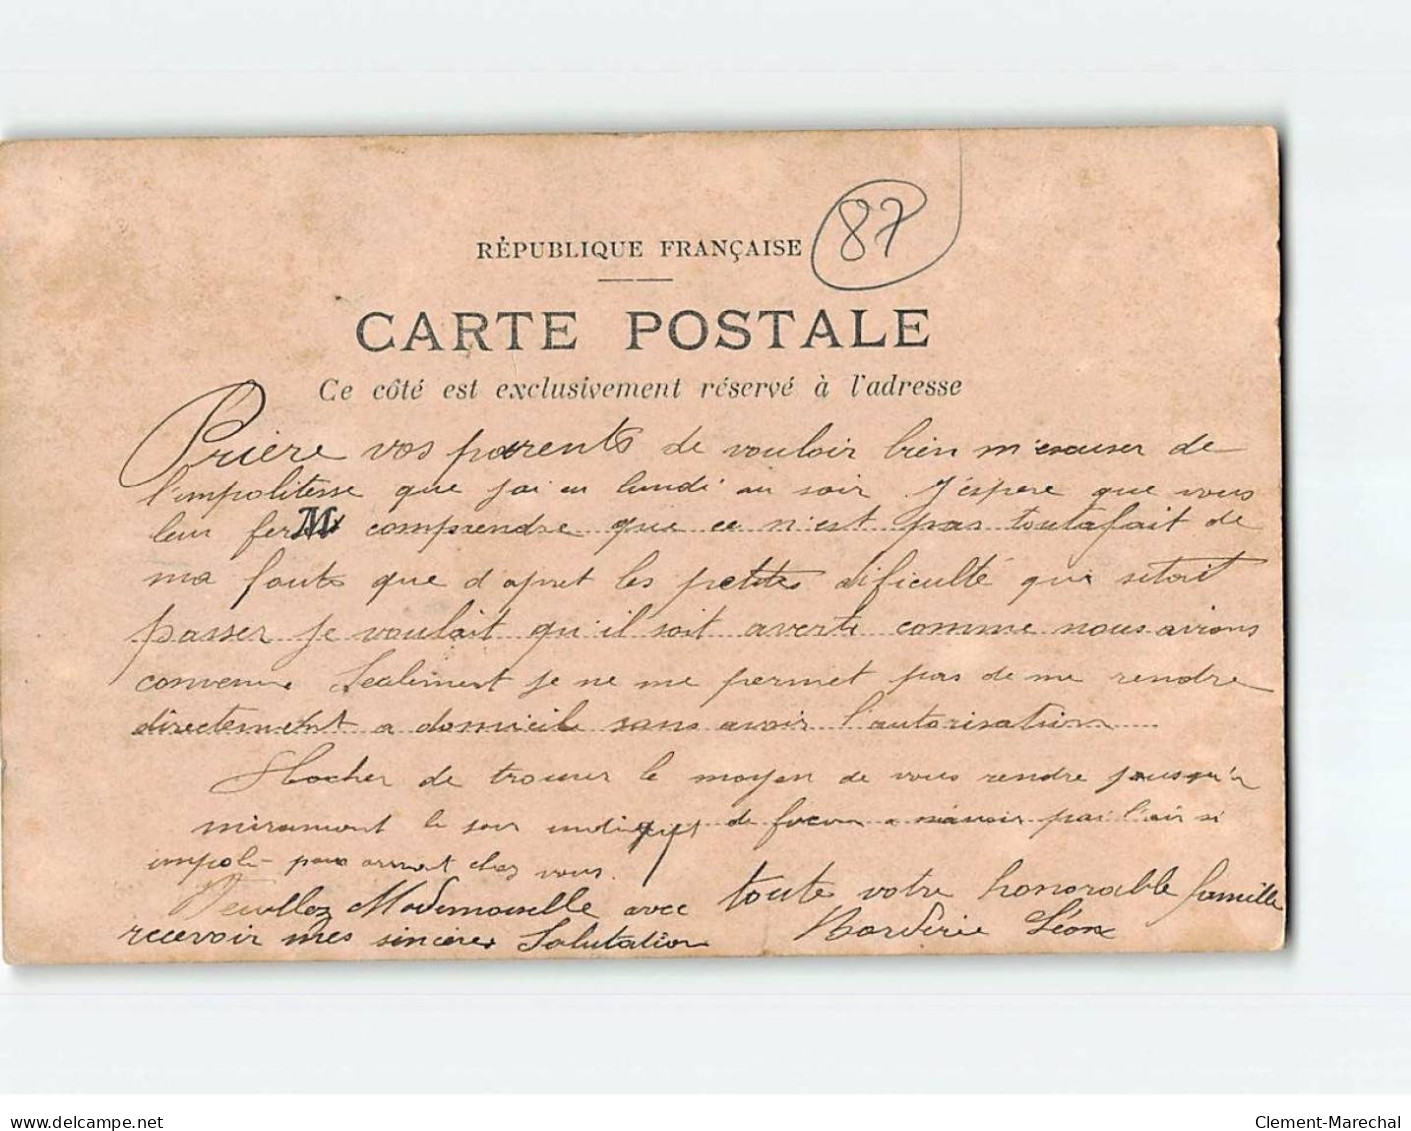 87
RÉPUBLIQUE FRANÇAISE
CARTE POSTALE
Ce côté est exclusivement réservé à l'adresse
Prière vos parents de vouloir bien m'excuser de
l'impolitesse que j'ai eu lundi au soir J'espère que vous
leur comprendre que ce n'est pas toutafait de
ma faute que d'apret les petites dificulté qui setait
passer je voulait qu'il soit averti comme nous avions
convenu Sealement je ne me permet pas de me rendre
directement a domicile sans avoir l'autorisation
de trouver le moyen de vous rendre
le soir de facon a n'avoir pas l'air si
impoli pour arrivet chez vous.
Veuillez Mademoiselle avec toute votre honorable famille
recevoir mes sincères Salutation Borderie Léon
delcampe.net
Clement-Marechal